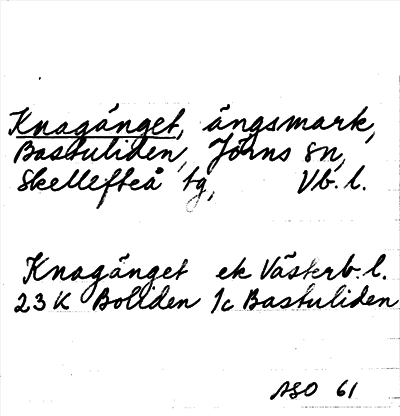 Knagänget, ängsmark,
Bastuliden, Jörns sn,
Skellefteå tg, Vb. l.
Knagänget ek Västerb. l.
23 K Boliden 1c Bastuliden
ASO 61